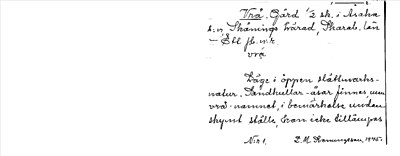 Vrå. Gård 1/2 sk. i Asaka
s:n Skånings härad, Skarab. län
– Ebl fl. n:r.
vrå
Läge i öppen slättmarks-
natur. Sandkullar-åsar finnes, men
vrå-namnet, i bemärkelse undan-
skymt ställe, kan icke tillämpas
N:r 1. L. M. 1945.